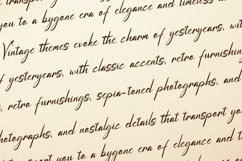 you to a bygone era of elegance and timeless
Vintage themes evoke the charm of yesteryears, with
of yesteryears, with classic accents, retro furnishings
, retro furnishings, sepia-toned photographs, and
photographs, and nostalgic details that transport you
transport you to a bygone era of elegance and t